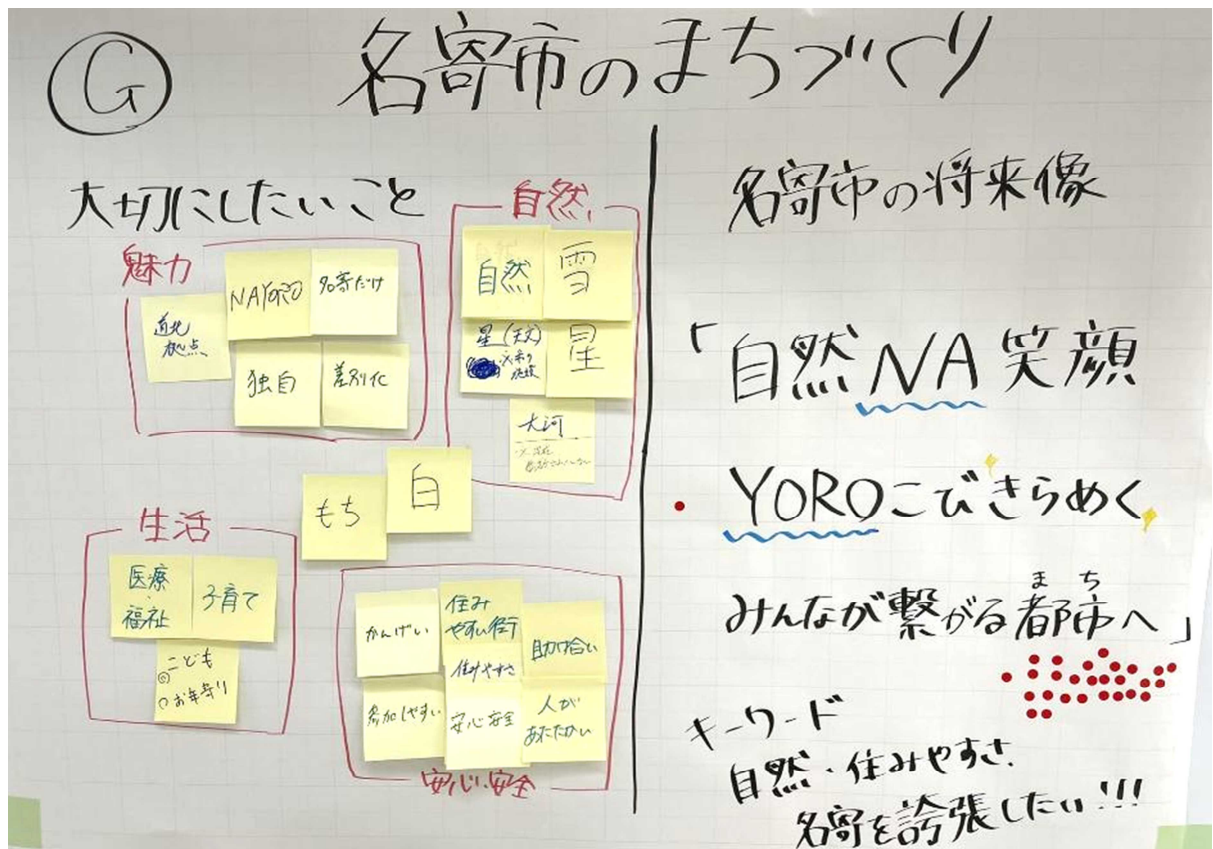 G
名寄市のまちづくり
大切にしたいこと
魅力
道北
拠点
NAYORO
名寄だけ
独自
差別化
自然
自然
雪
星(天文)
星
大河
もち
白
生活
医療
・
福祉
子育て
◎こども
○お年寄り
かんげい
住み
やすい街
住みやすさ
助け合い
参加しやすい
安心安全
人が
あたたかい
安心・安全
名寄市の将来像
「自然NA笑顔
YOROこびきらめく
みんなが繋がる都市へ」
まち
キーワード
自然・住みやすさ
名寄を誇張したい!!!